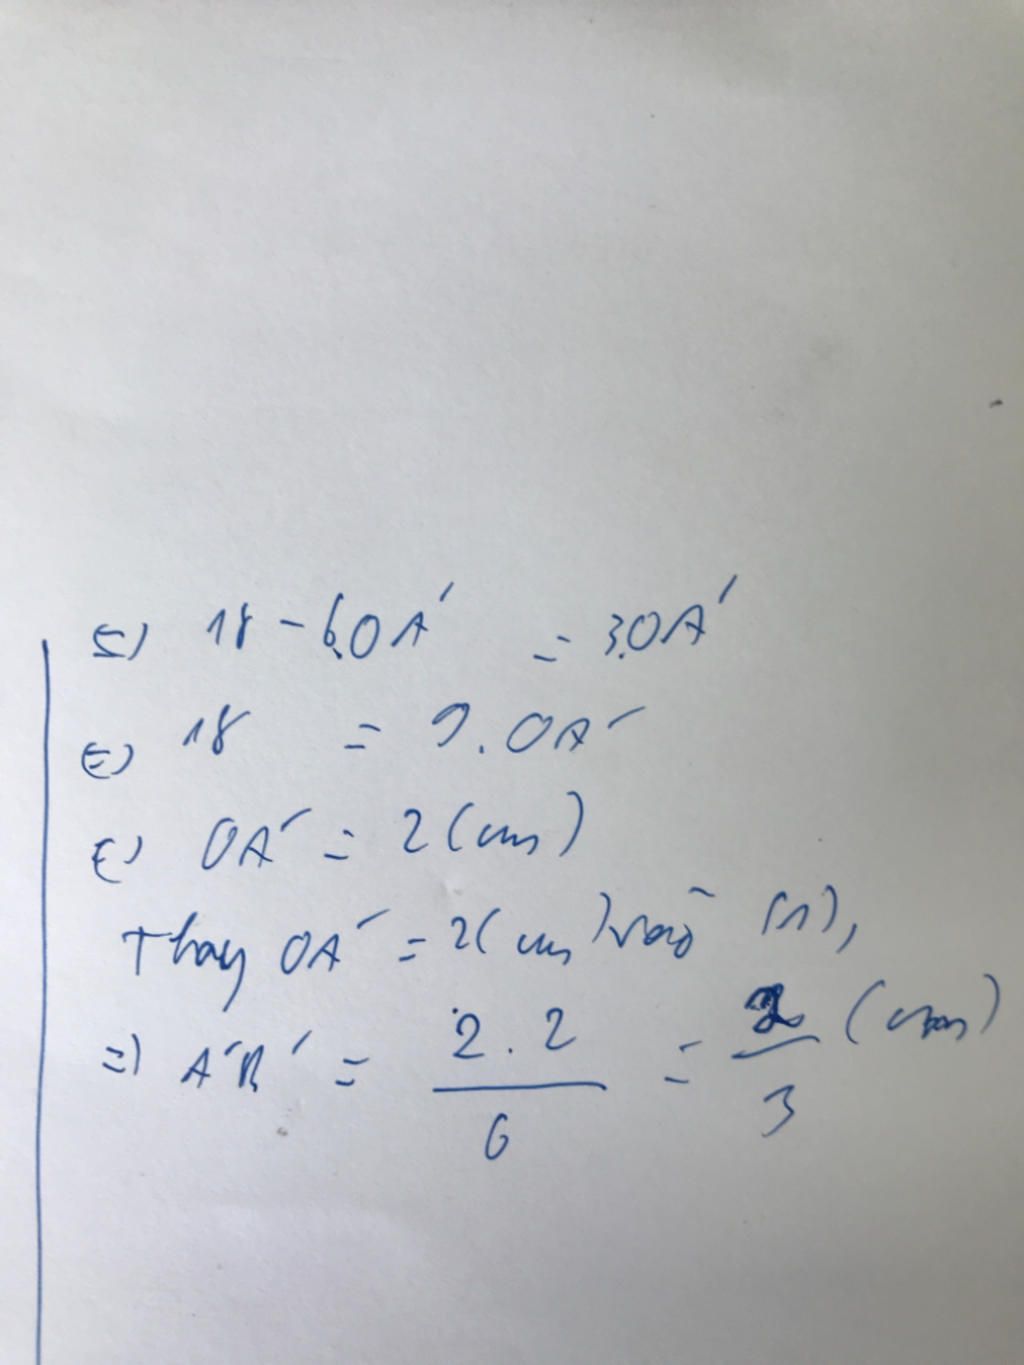 ⇔ 18 - 6.OA' = 3.OA'
⇔ 18 = 9.OA'
⇔ OA' = 2 (cm)
Thay OA' = 2 (cm) vào (1),
⇒ A'B' = \frac{2.2}{6} = \frac{2}{3} (cm)